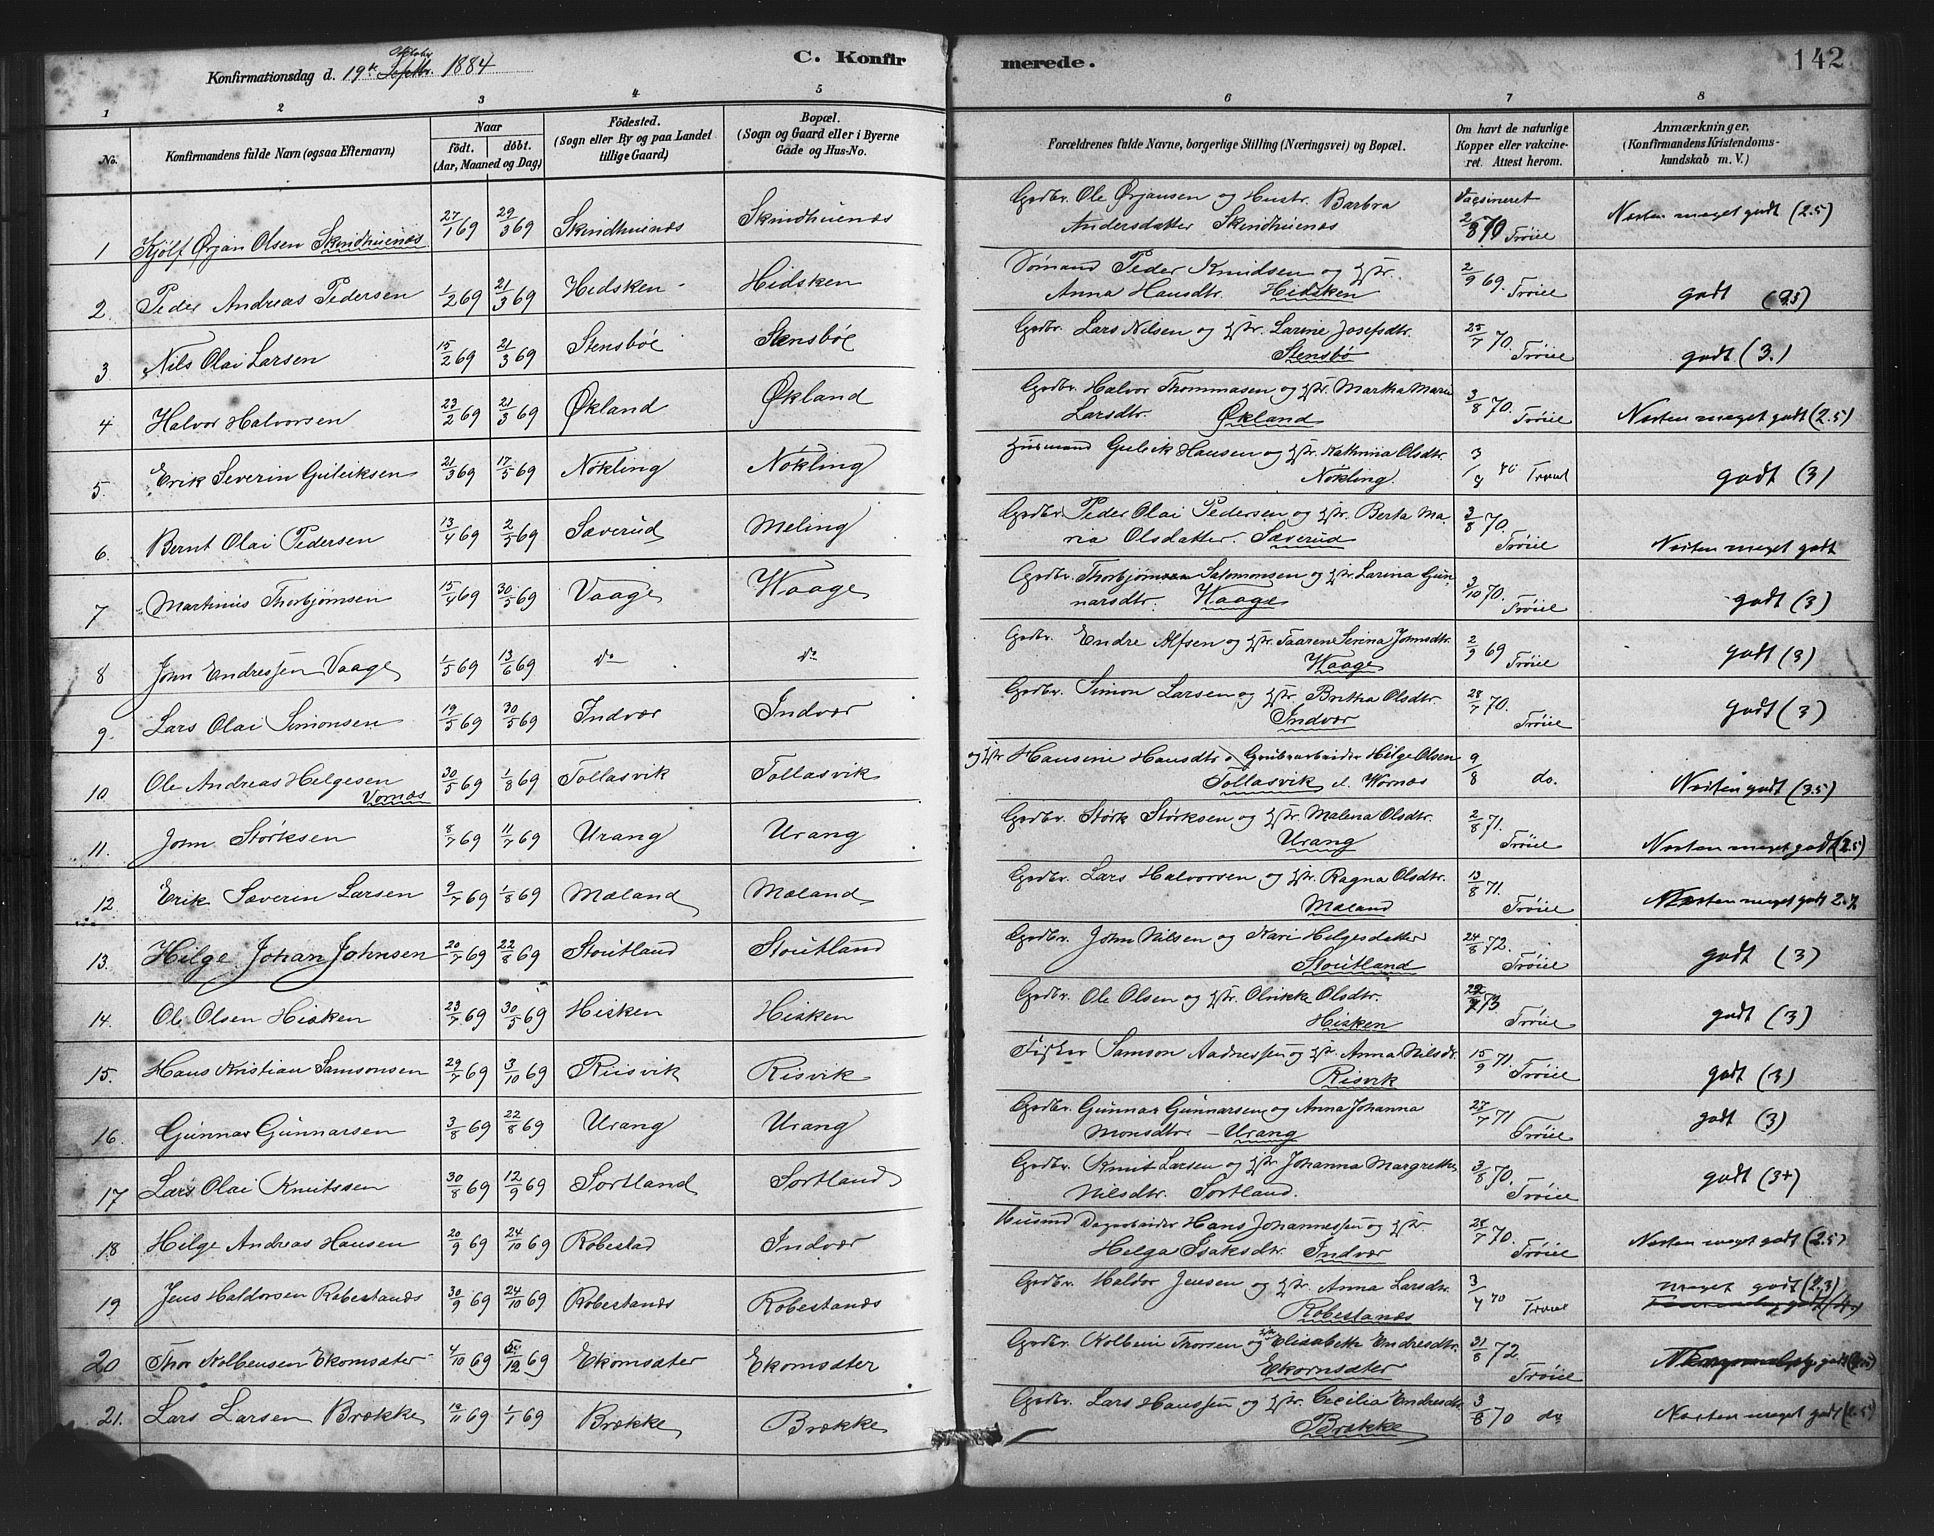 Konfirmationsdag d. 19de Oktober Septbr. 1884
C. Konfirmerede.
142
1 2 3 4 5 6 7 8
No.
Konfirmandens fulde Navn (ogsaa Efternavn)
Naar
födt. döbt.
(Aar, Maaned og Dag)
Födested.
(Sogn eller By og paa Landet tillige Gaard)
Bopæl.
(Sogn og Gaard eller i Byerne Gade og Hus-No.
Forældrenes fulde Navne, borgerlige Stilling (Næringsvei) og Bopæl.
Om havt de naturlige Kopper eller vakcineret. Attest herom.
Anmærkninger.
(Konfirmandens Kristendomskundskab m. V.)
1 Kjölf Ørjan Olsen Skindhuenæs 27/1 69 29/3 69 Skindhuenæs Skindhuenæs Grdbr. Ole Ørjansen og Hustr. Barbra Andersdatter Skindhuenæs Vaqsineret 2/8 70 Tröiel Næsten meget godt (2.5)
2. Peder Andreas Pedersen 1/2 69 21/3 69 Hidsken Hidsken Sømand Peder Knudsen og Hstr. Anna Hansdtr. Hidsken 2/9 69. Tröiel godt (2.5)
3 Nils Olai Larsen 15/2 69 21/3 69 Stensböe Stensböe Grdbr. Lars Nilsen og Hstr. Larine Josefsdtr. Stensbö 25/7 70. Tröiel godt (3.)
4 Halvor Halvorsen 23/2 69 21/3 69 Økland Økland Grdbr. Halvor Thommasen og Hstr. Martha Marie Larsdtr. Økland 3/8 70. Tröiel Næsten meget godt (2.5)
5. Erik Severin Guleiksen 21/3 69 17/5 69 Nökling Nökling Husmand Guleik Hansen og Hstr. Kathrina Olsdtr. Nökling. godt (3)
6. Bernt Olai Pedersen 13/4 69 2/5 69 Sæverud Meling Grdbr. Peder Olai Pedersen og Hstr. Berta Maria Olsdatter. Sæverud 3/8 70. Tröiel Næsten meget godt
7 Martinus Thorbjörnsen 15/4 69 30/5 69 Vaage Waage Grdbr. Thorbjörn Salomonsen og Hstr. Larina Gunnarsdtr. Waage 3/10 70. Tröiel godt (3)
8 John Endressen Vaage 1/5 69 13/6 69 do do Grdbr. Endre Alfsen og Hstr. Taarene Serina Johnsdtr. Waage 2/9 69 Tröiel godt (3)
9. Lars Olai Simonsen 19/5 69 30/5 69 Indvær Indvær Grdbr. Simon Larsen og Hstr. Britha Olsdtr. Indvær 28/7 70. Tröiel godt (3)
10 Ole Andreas Helgesen Vornæs 30/5 69 1/8 69 Tollasvik Tollasvik og Hstr Hansine Hansdtr. Grubearbeider Helge Olsen Tollasvik d. Wornæs 9/8 do. Næsten godt (3.5)
11. John Störksen 8/7 69 11/7 69 Urang Urang Grdbr. Störk Störksen og Hstr. Malena Olsdtr. Urang 2/8 71. Tröiel Næsten meget godt (2.5)
12 Erik Sæverin Larsen 9/7 69 1/8 69 Mæland Mæland Grdbr. Lars Halvorsen og Hstr. Ragna Olsdtr. Mæland 13/8 71. Tröiel Næsten meget godt 2.7
13. Helge Johan Johnsen 20/7 69 22/8 69 Stoutland Stoutland Grdbr. John Nilsen og Kari Helgesdatter Stoutland 24/8 72. Tröiel godt (3)
14. Ole Olsen Hisken 23/7 69 30/5 69 Hisken Hisken Grdbr. Ole Olsen og Hstr. Olrikke Olsdtr. Hisken 73 Tröiel godt (3)
15. Hans Kristian Samsonsen 29/7 69 3/10 69 Riisvik Risvik Fisker Samson Aadnessen og Hstr. Anna Nilsdtr. Risvik 15/9 71. Tröiel godt (3)
16. Gunnar Gunnarsen 3/8 69 22/8 69 Urang Urang Grdbr. Gunnar Gunnarsen og Anna Johanna Monsdtr. Urang 27/7 71 Tröiel godt (3)
17 Lars Olai Knutssen 30/8 69 12/9 69 Sortland Sortland Grdbr. Knut Larsen og Hstr. Johanna Margrethe Nilsdtr. Sortland. 3/8 70. Tröiel godt (3+)
18 Helge Andreas Hansen 20/9 69 24/10 69 Robestad Indvær Husmd Dagarbeider Hans Johannessen og Hstr. Helga Isaksdtr. Indvær 28/7 70. Tröiel Næsten meget godt (2.5)
19 Jens Haldorsen Robestanæs 30/9 69 24/10 69 Robestanæs Robestanæs Grdbr. Haldor Jensen og Hstr. Anna Larsdtr. Robestanæs 3/4 70 meget godt (2.3)
20 Thor Kolbensen Ekornsæter 4/10 69 12 69 Ekornsæter Ekornsæter Grdbr. Kolbein Thorsen og Hstr Elisabeth Endresdtr. Ekornsæter 31/8 72. Tröiel
21. Lars Larsen Brække 19/11 69 1/1 69 Brække Brække Grdbr. Lars Hanssen og Hstr. Cecilia Endresdtr. Brække 3/8 70 do Næsten meget godt (2.5)